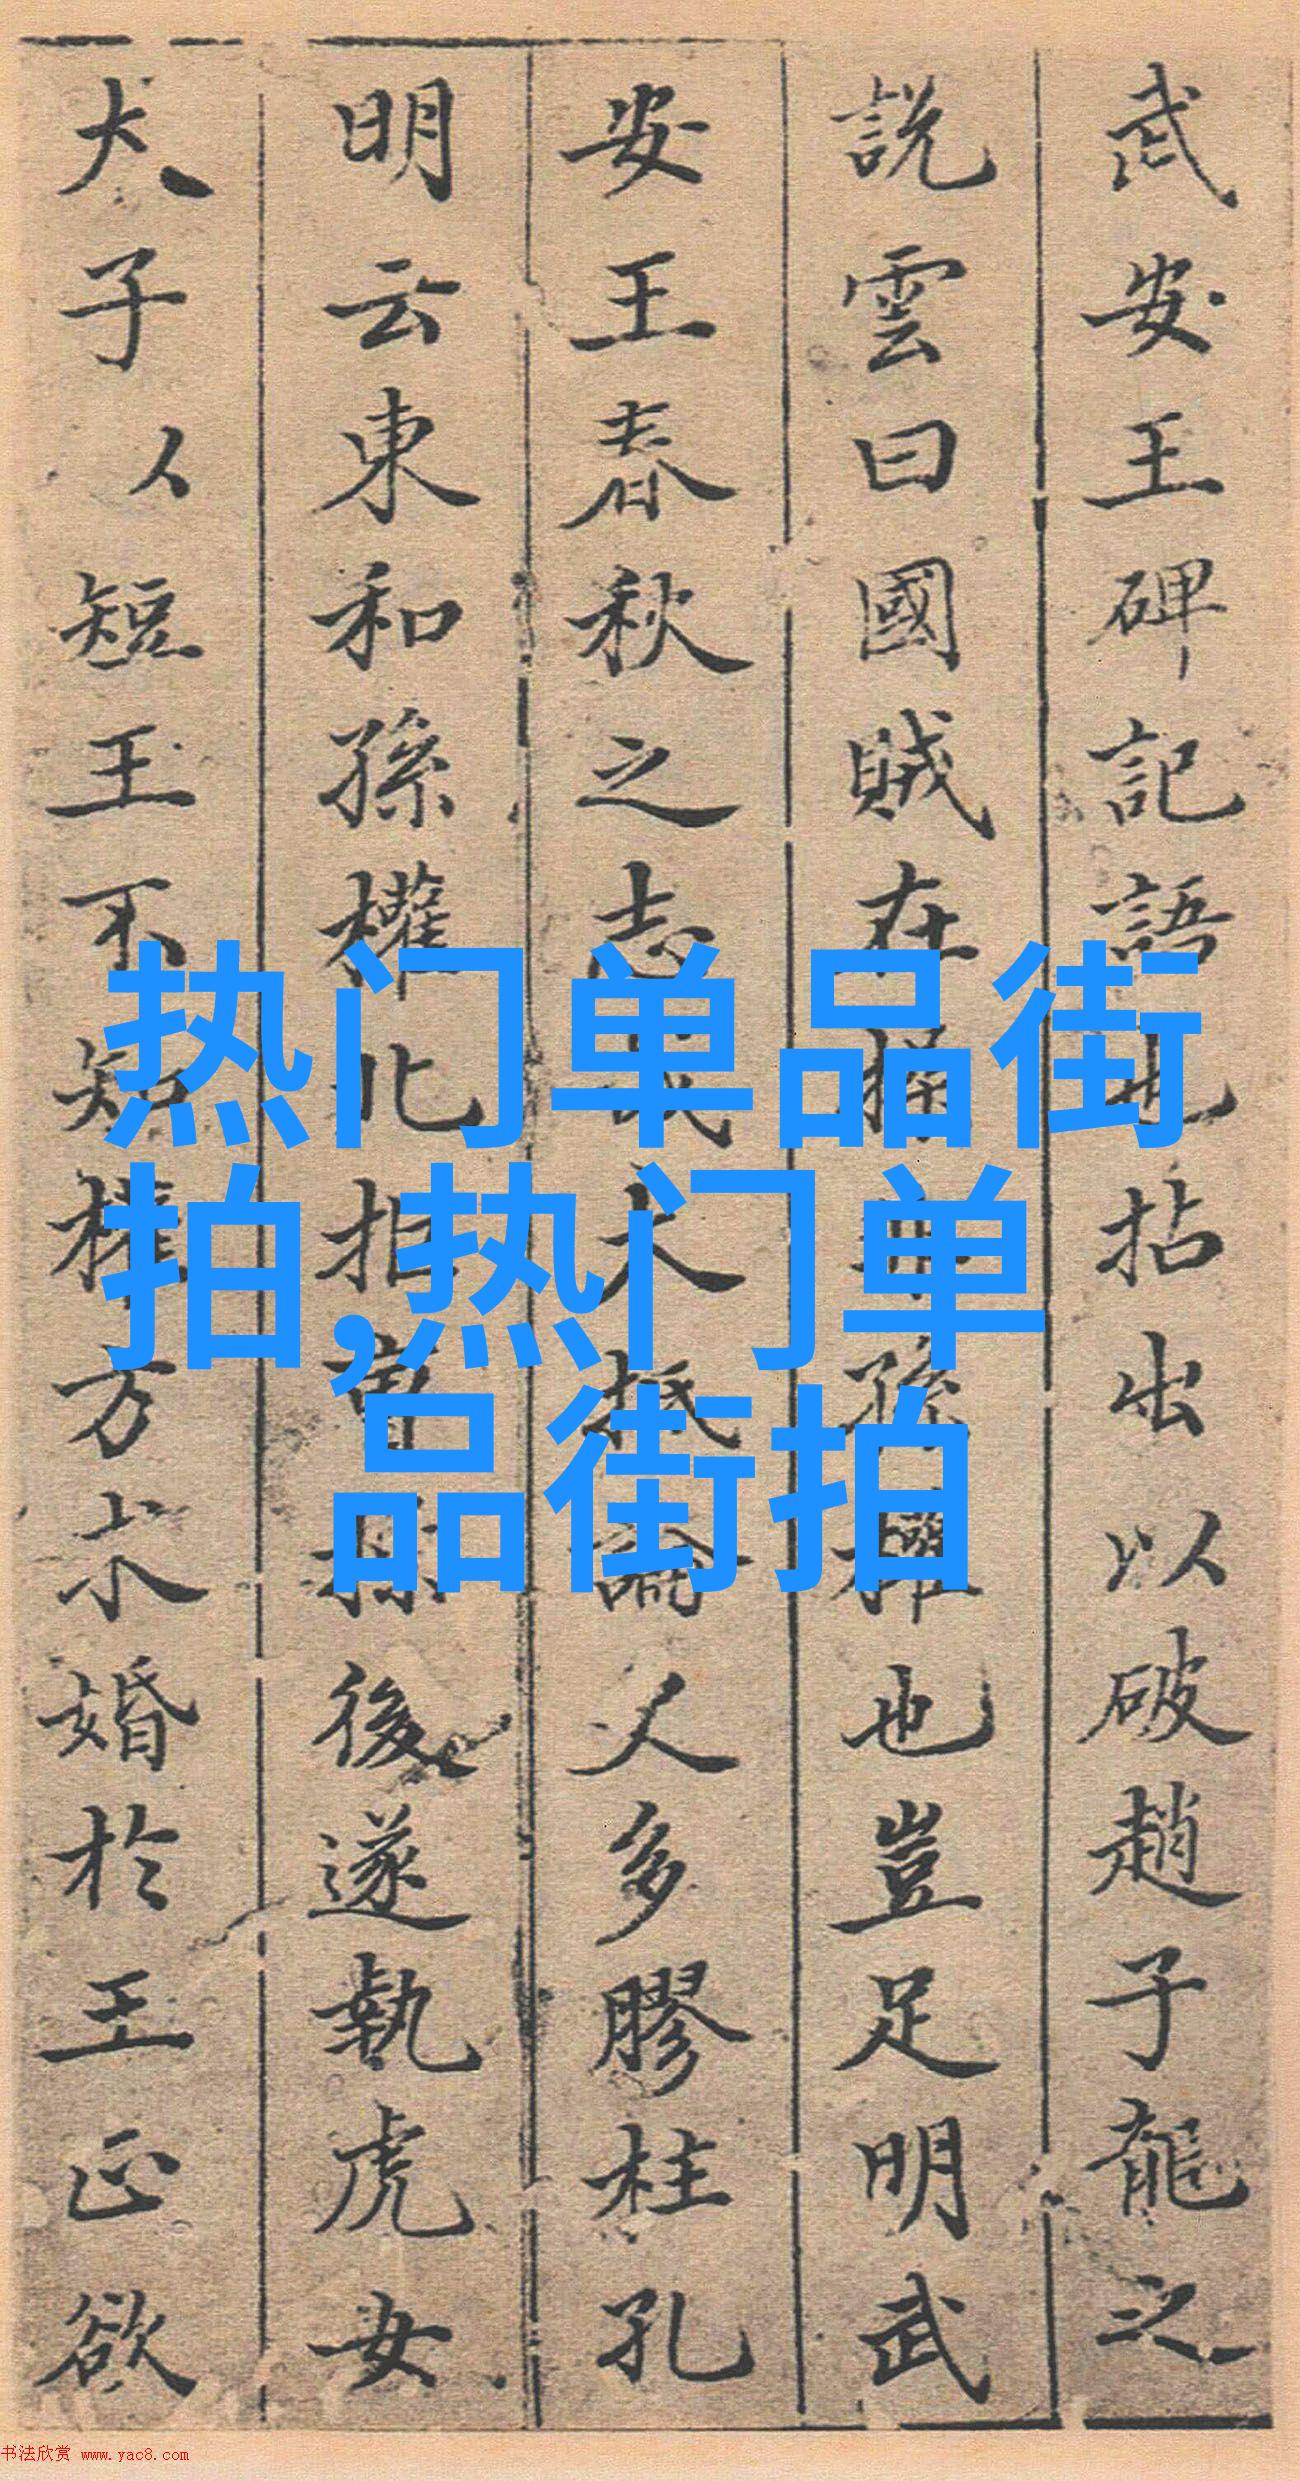 武安王碑記語也拈出以破趙子龍之
說雲曰國賊在操非孫權也豈足明武
安王春秋之志哉大抵論人多膠柱孔
明云東和孫權北拒曹操後遂執虎女
犬子以短王不知權方求婚於王正欲
热门单品街
拍,热门单
品街拍
书法欣赏 www.yac8.com